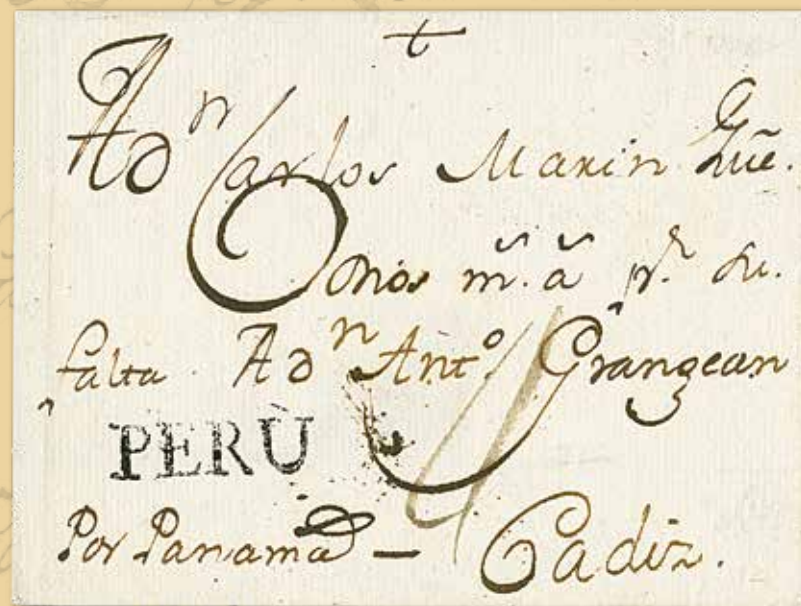 +
A Dn Carlos Marin
Dios m.s a.s pr. su.
falta. A Dn Anto. Grangean
PERÙ 4
Por Panamá — Cadiz.